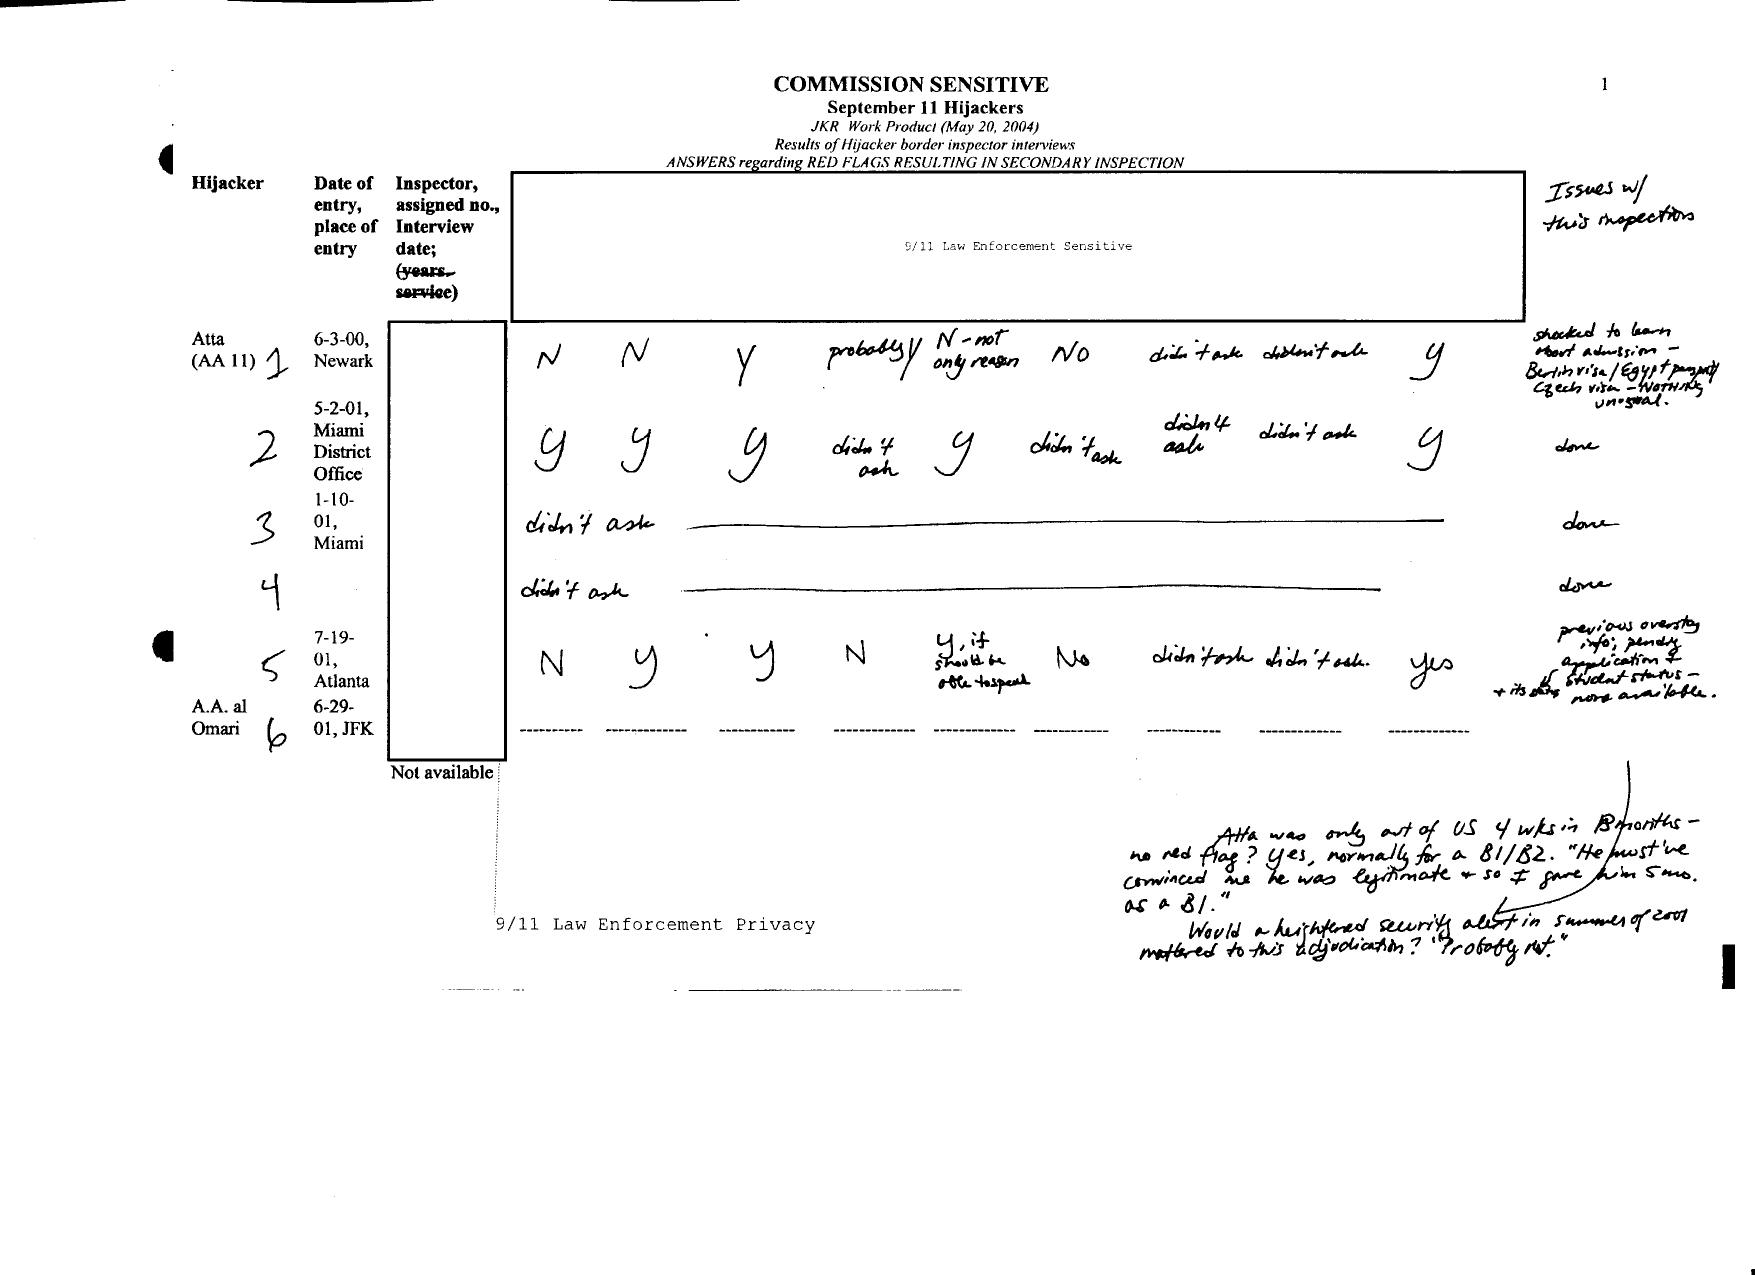 COMMISSION SENSITIVE
1
September 11 Hijackers
JKR Work Product (May 20, 2004)
Results of Hijacker border inspector interviews
ANSWERS regarding RED FLAGS RESULTING IN SECONDARY INSPECTION
Hijacker
Date of entry, place of entry
Inspector, assigned no., Interview date; (years service)
9/11 Law Enforcement Sensitive
Issues w/
this inspection
Atta (AA 11) 1 6-3-00, Newark
N N Y probably y N - not only reason No didn't ask didn't ask y
shocked to learn
about admission -
Berlin visa / Egypt passport
Czech visa - NOTHING
unusual.
2 5-2-01, Miami District Office
y y y didn't ask y didn't ask didn't ask didn't ask y done
3 1-10-01, Miami
didn't ask done
4 didn't ask done
5 7-19-01, Atlanta
N y y N y, if should be able to speak No didn't ask didn't ask. yes
previous overstay
info; pending
application &
student status -
more available.
A.A. al Omari 6 6-29-01, JFK
Not available
Atta was only out of US 4 wks in months -
no red flag? Yes, normally for a B1/B2. "He must've
convinced me he was legitimate + so I gave him 5 mo.
as a B1."
Would a heightened security alert in summer of 2001
mattered to this adjudication? "Probably not."
9/11 Law Enforcement Privacy